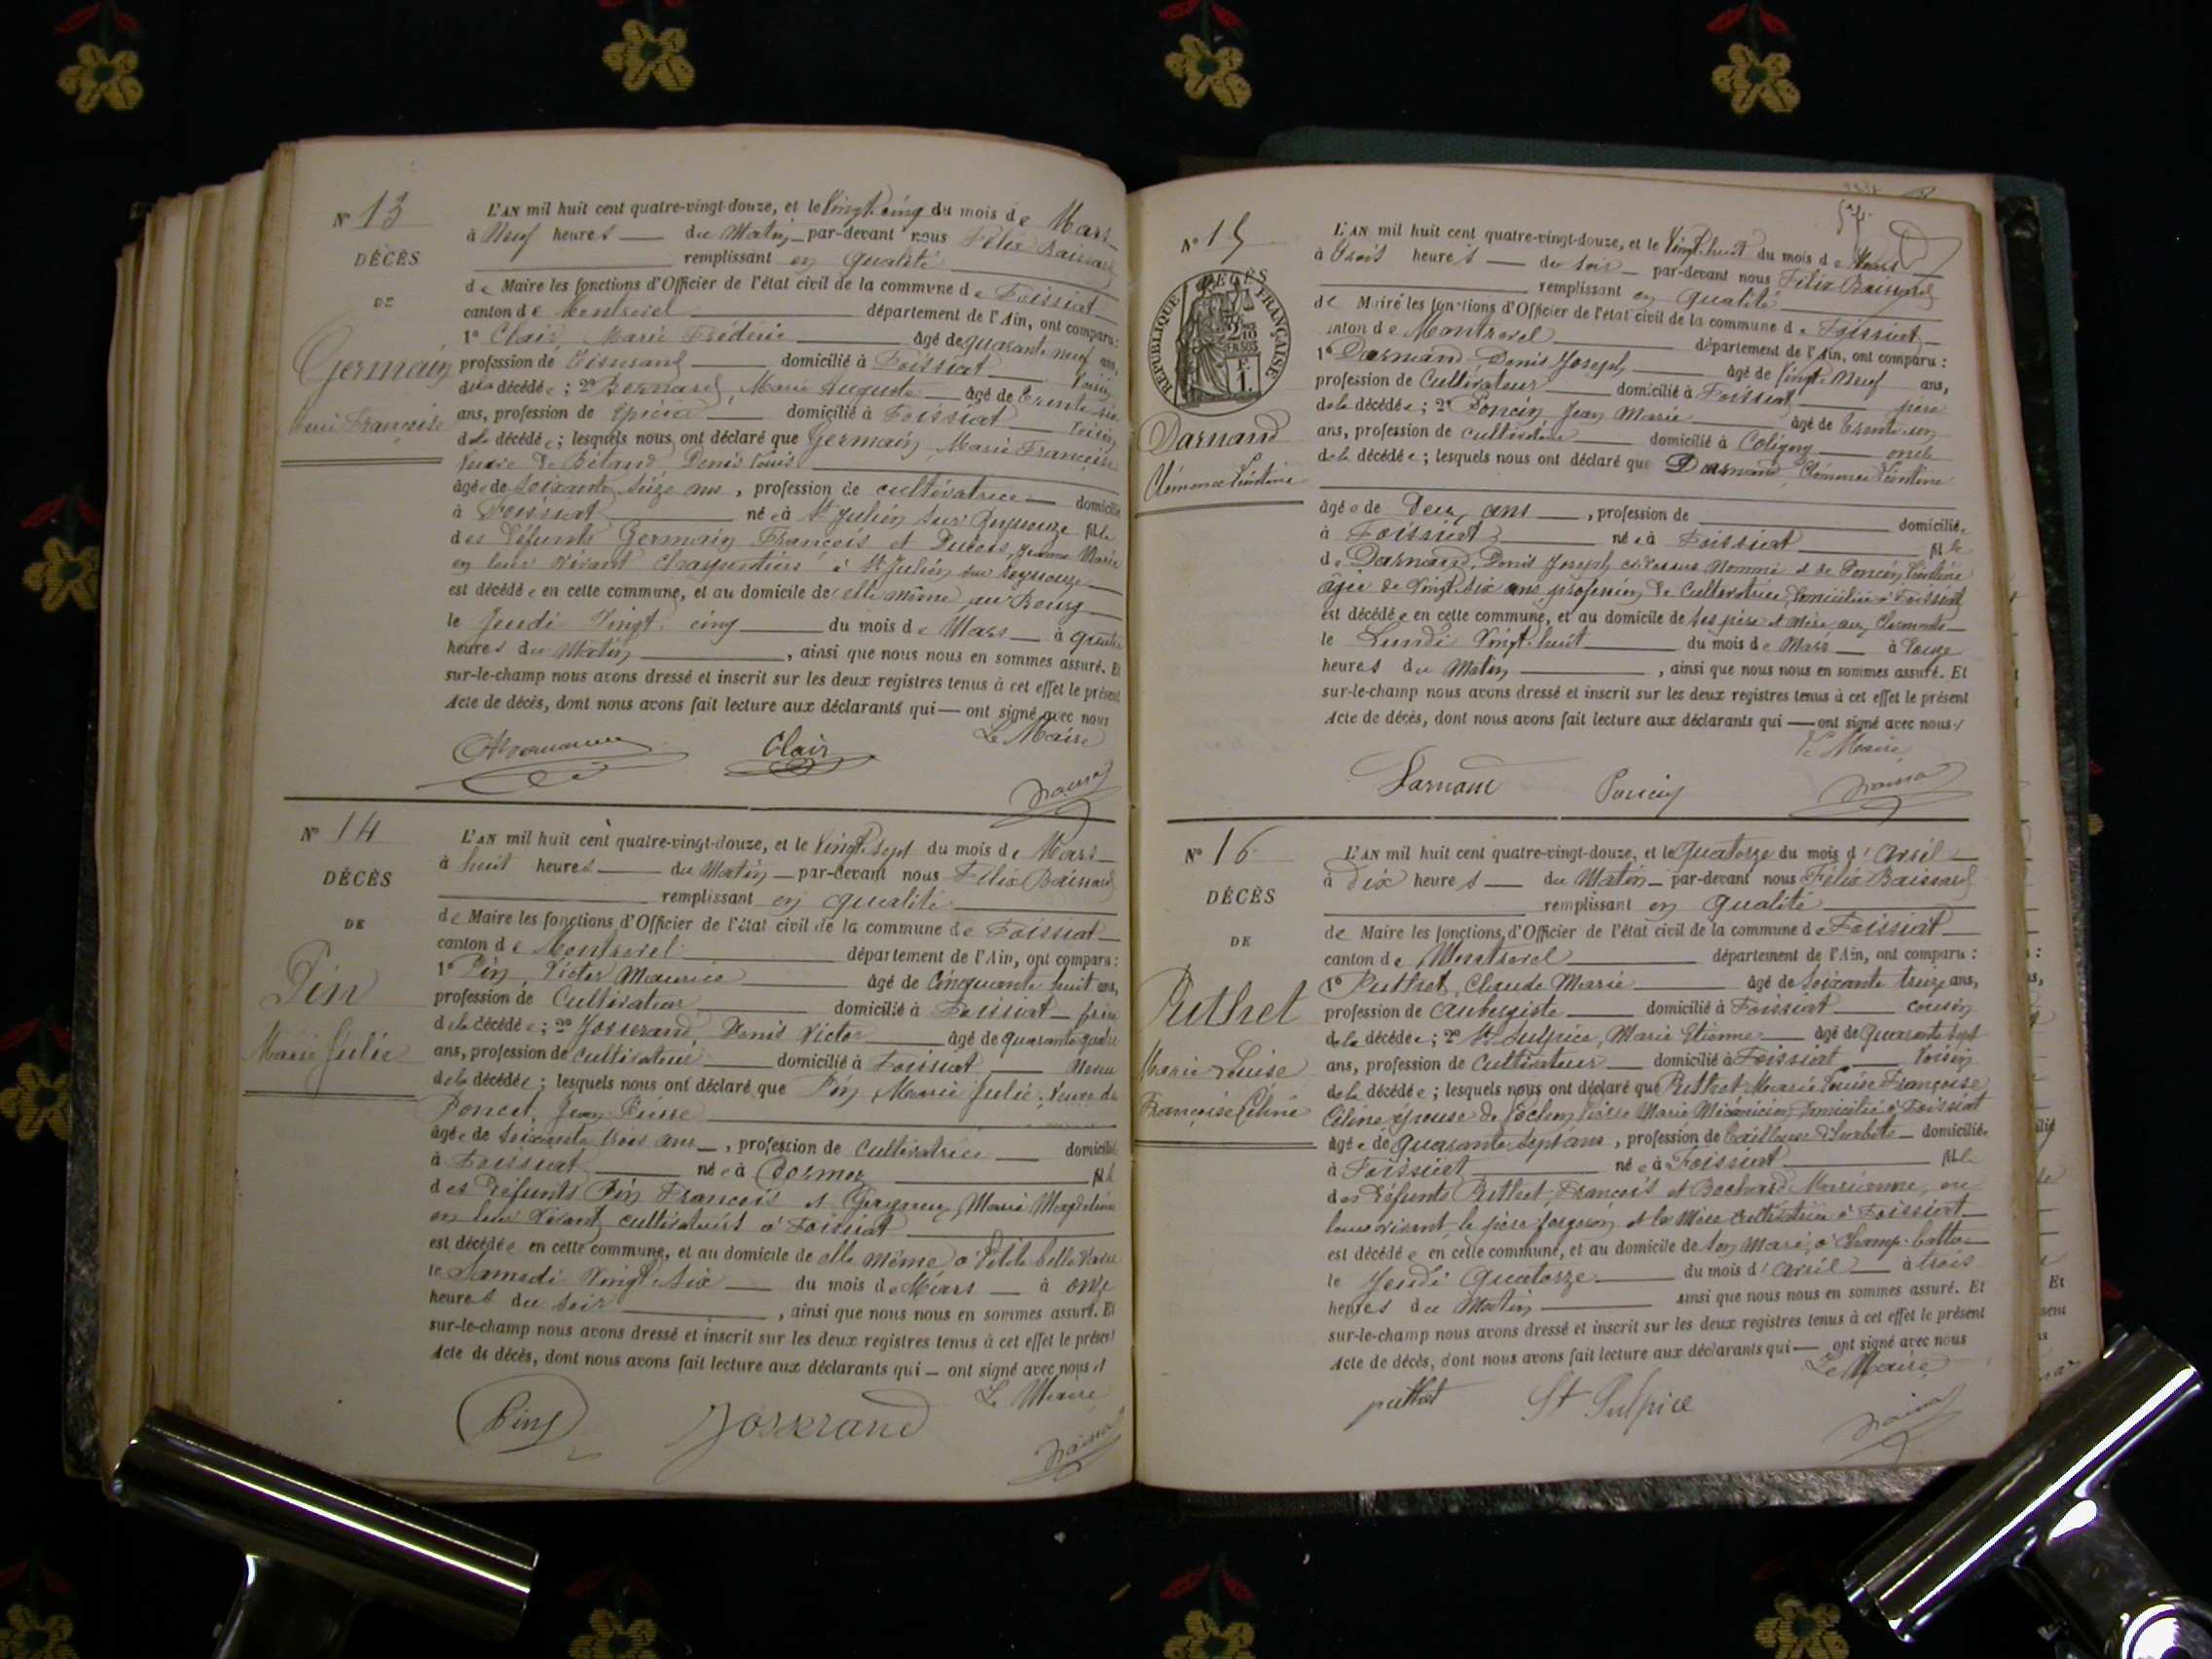 N° 13
DÉCÈS
DE
Germain
Marie Françoise
L'AN mil huit cent quatre-vingt-douze, et le Vingt cinq du mois de Mars
à Neuf heures du Matin par-devant nous Félix Baissard
remplissant en qualité
de Maire les fonctions d'Officier de l'état civil de la commune de Foissiat
canton de Montrevel département de l'Ain, ont comparu :
1° Clair, Marie Frédéric âgé de quarante neuf ans,
profession de Tisserand domicilié à Foissiat Voisin
de la décédée ; 2° Bernard, Marie Auguste âgé de Trente six
ans, profession de épicier domicilié à Foissiat Voisin
de la décédée ; lesquels nous ont déclaré que Germain, Marie Françoise
Veuve de Denis Louis
âgée de soixante seize ans, profession de cultivatrice domicilié
à Foissiat née à St Julien sur Reyssouze fille
des défunts Germain François et Jeanne Marie
en leur vivant à St Julien sur Reyssouze
est décédée en cette commune, et au domicile de elle même au Bourg
le Jeudi Vingt cinq du mois de Mars à quatre
heures du Matin, ainsi que nous nous en sommes assuré. Et
sur-le-champ nous avons dressé et inscrit sur les deux registres tenus à cet effet le présent
Acte de décès, dont nous avons fait lecture aux déclarants qui ont signé avec nous
Le Maire
Clair
N° 14
DÉCÈS
DE
Pin
Marie Julie
L'AN mil huit cent quatre-vingt-douze, et le Vingt sept du mois de Mars
à huit heures du Matin par-devant nous Félix Baissard
remplissant en qualité
de Maire les fonctions d'Officier de l'état civil de la commune de Foissiat
canton de Montrevel département de l'Ain, ont comparu :
1° Pin, Victor Maurice âgé de Cinquante huit ans,
profession de Cultivateur domicilié à Foissiat frère
de la décédée ; 2° Josserand, Denis Victor âgé de quarante quatre
ans, profession de cultivateur domicilié à Foissiat Neveu
de la décédée ; lesquels nous ont déclaré que Pin, Marie Julie, Veuve de
Poncet, Jean Pierre
âgée de soixante trois ans, profession de Cultivatrice domicilié
à Foissiat née à Cormoz fille
des défunts Pin François et Marie Magdeleine
en leur vivant cultivateurs à Foissiat
est décédée en cette commune, et au domicile de elle même à Petite belle Vavre
le Samedi Vingt six du mois de Mars à onze
heures du soir, ainsi que nous nous en sommes assuré. Et
sur-le-champ nous avons dressé et inscrit sur les deux registres tenus à cet effet le présent
Acte de décès, dont nous avons fait lecture aux déclarants qui ont signé avec nous
Le Maire
Pin Josserand
N° 15
RÉPUBLIQUE FRANÇAISE
Darnand
Clémence Léontine
L'AN mil huit cent quatre-vingt-douze, et le Vingt huit du mois de Mars
à trois heures du soir par-devant nous Félix Baissard
remplissant en qualité
de Maire les fonctions d'Officier de l'état civil de la commune de Foissiat
canton de Montrevel département de l'Ain, ont comparu :
1° Darnand Denis Joseph âgé de Vingt Neuf ans,
profession de Cultivateur domicilié à Foissiat père
de la décédée ; 2° Poncin Jean Marie âgé de Trente un
ans, profession de cultivateur domicilié à Coligny oncle
de la décédée ; lesquels nous ont déclaré que Darnand, Clémence Léontine
âgée de Deux ans, profession de domiciliée
à Foissiat née à Foissiat fille
de Darnand, Denis Joseph ci-dessus nommé et de Poncin, Léontine
âgée de Vingt six ans profession de Cultivatrice, domiciliée à Foissiat
est décédée en cette commune, et au domicile de ses père et mère aux
le Lundi Vingt huit du mois de Mars à onze
heures du Matin, ainsi que nous nous en sommes assuré. Et
sur-le-champ nous avons dressé et inscrit sur les deux registres tenus à cet effet le présent
Acte de décès, dont nous avons fait lecture aux déclarants qui ont signé avec nous
Le Maire
Darnand Poncin
N° 16
DÉCÈS
DE
Puthet
Marie Louise
Françoise Céline
L'AN mil huit cent quatre-vingt-douze, et le Quatorze du mois d'Avril
à Dix heures du Matin par-devant nous Félix Baissard
remplissant en qualité
de Maire les fonctions d'Officier de l'état civil de la commune de Foissiat
canton de Montrevel département de l'Ain, ont comparu :
1° Puthet, Claude Marie âgé de soixante treize ans,
profession de Aubergiste domicilié à Foissiat cousin
de la décédée ; 2° St Sulpice, Marie Etienne âgé de quarante sept
ans, profession de Cultivateur domicilié à Foissiat Voisin
de la décédée ; lesquels nous ont déclaré que Puthet Marie Louise Françoise
Céline épouse de Pierre Marie Mécanicien domicilié à Foissiat
âgée de quarante sept ans, profession de Tailleuse d'habits domiciliée
à Foissiat née à Foissiat fille
des défunts Puthet François et Bochard Marianne, en
leur vivant, le père forgeron et la Mère Cultivatrice à Foissiat
est décédée en cette commune, et au domicile de son Mari, à Champ
le Jeudi Quatorze du mois d'Avril à trois
heures du Matin ainsi que nous nous en sommes assuré. Et
sur-le-champ nous avons dressé et inscrit sur les deux registres tenus à cet effet le présent
Acte de décès, dont nous avons fait lecture aux déclarants qui ont signé avec nous
Le Maire
puthet St Sulpice